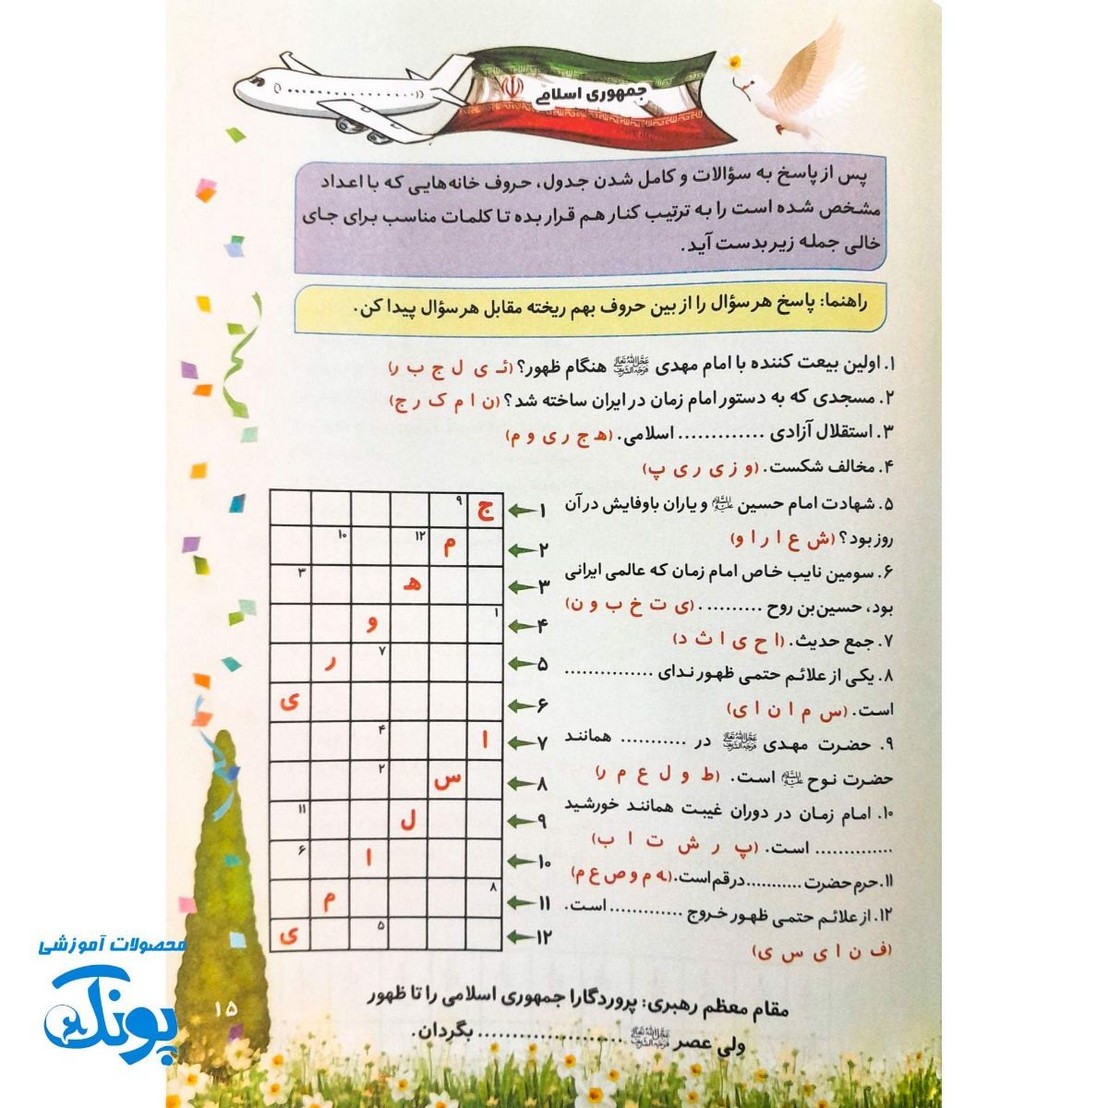 جمهوری اسلامی
پس از پاسخ به سؤالات و کامل شدن جدول، حروف خانه‌هایی که با اعداد
مشخص شده است را به ترتیب کنار هم قرار بده تا کلمات مناسب برای جای
خالی جمله زیر بدست آید.
راهنما: پاسخ هر سؤال را از بین حروف بهم ریخته مقابل هر سؤال پیدا کن.
۱. اولین بیعت کننده با امام مهدی عَجَّلَ اللهُ تَعالی فَرَجَهُ الشَّریف هنگام ظهور؟ (ئـ ی ل ج ب ر)
۲. مسجدی که به دستور امام زمان در ایران ساخته شد؟ (ن ا م ک ر ج)
۳. استقلال آزادی ............. اسلامی. (ه ج ر ی و م)
۴. مخالف شکست. (و ز ی ر ی پ)
۵. شهادت امام حسین عَلَیهِ السَّلام و یاران باوفایش در آن
روز بود؟ (ش ع ا ر ا و)
۶. سومین نایب خاص امام زمان که عالمی ایرانی
بود، حسین‌بن روح .......... . (ی ت خ ب و ن)
۷. جمع حدیث. (ا ح ی ا ث د)
۸. یکی از علائم حتمی ظهور ندای ...............
است. (س م ا ن ا ی)
۹. حضرت مهدی عَجَّلَ اللهُ تَعالی فَرَجَهُ الشَّریف در ........... همانند
حضرت نوح عَلَیهِ السَّلام است. (ط و ل ع م ر)
۱۰. امام زمان در دوران غیبت همانند خورشید
............. است. (پ ر ش ت ا ب)
۱۱. حرم حضرت ........... در قم است. (ه م و ص ع م)
۱۲. از علائم حتمی ظهور خروج ............. است.
(ف ن ا ی س ی)
۱ ج ۹
۲ م ۱۲ ۱۰
۳ ه ۳
۴ ۱ و
۵ ۷ ر
۶ ی
۷ ا ۴
۸ س ۲
۹ ل ۱۱
۱۰ ا ۶
۱۱ ۸ م
۱۲ ۵ ی
مقام معظم رهبری: پروردگارا جمهوری اسلامی را تا ظهور
ولی عصر عَجَّلَ اللهُ تَعالی فَرَجَهُ الشَّریف ...................... بگردان.
۱۵
محصولات آموزشی
پونک